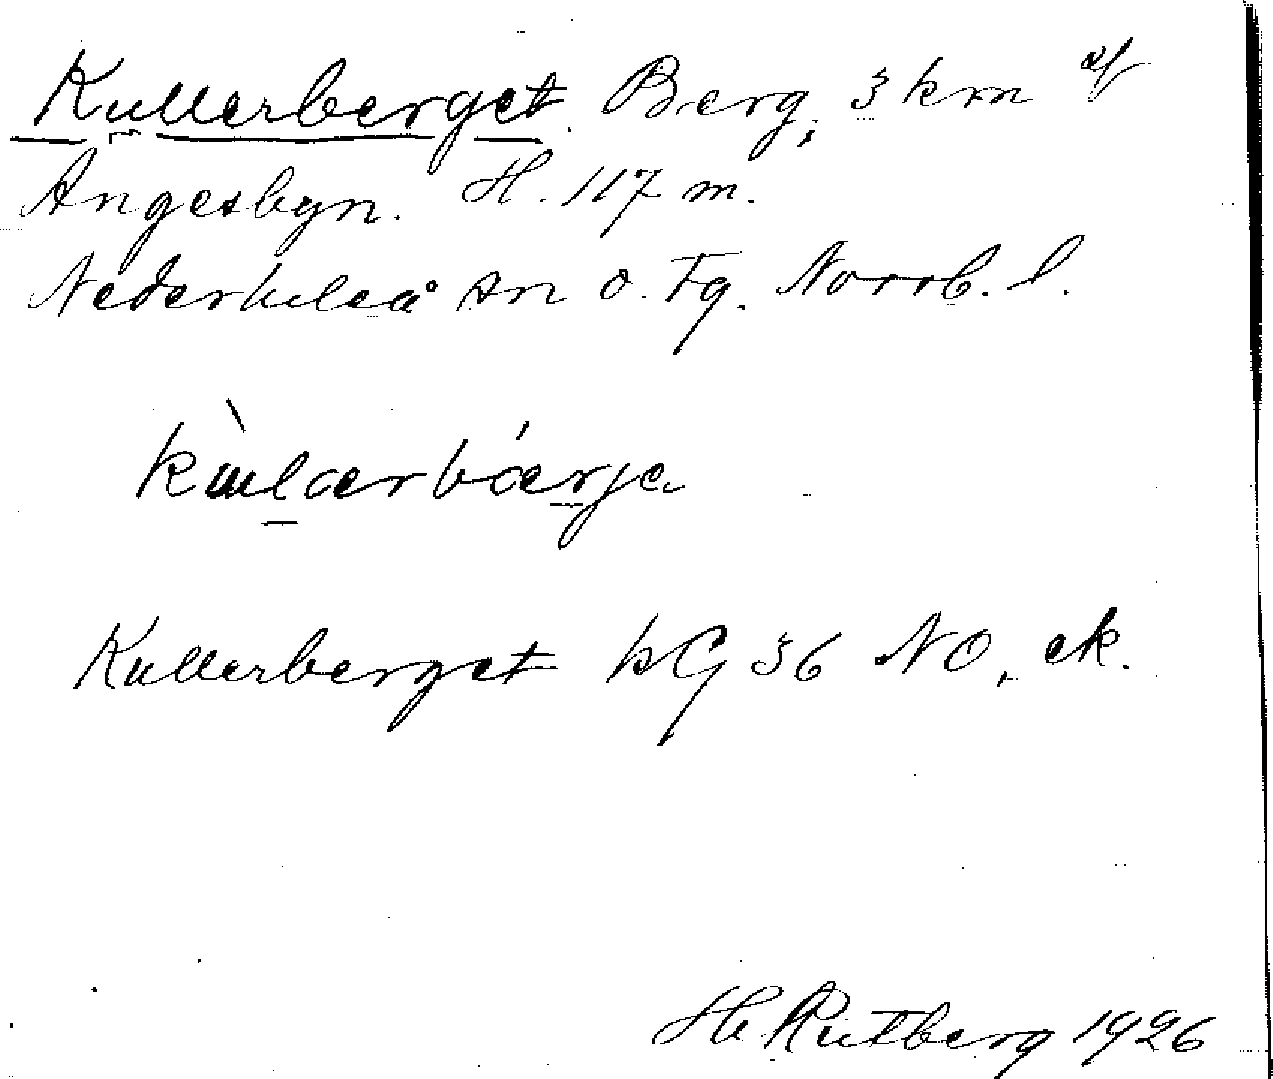 Kullerberget. Berg, 3 km af
Ängesbyn. H. 117 m.
Nederluleå sn o. tg. Norrb. l.
kùlarbǽrje
Kullerberget kG 36 NO, ek.
H. Rutberg 1926